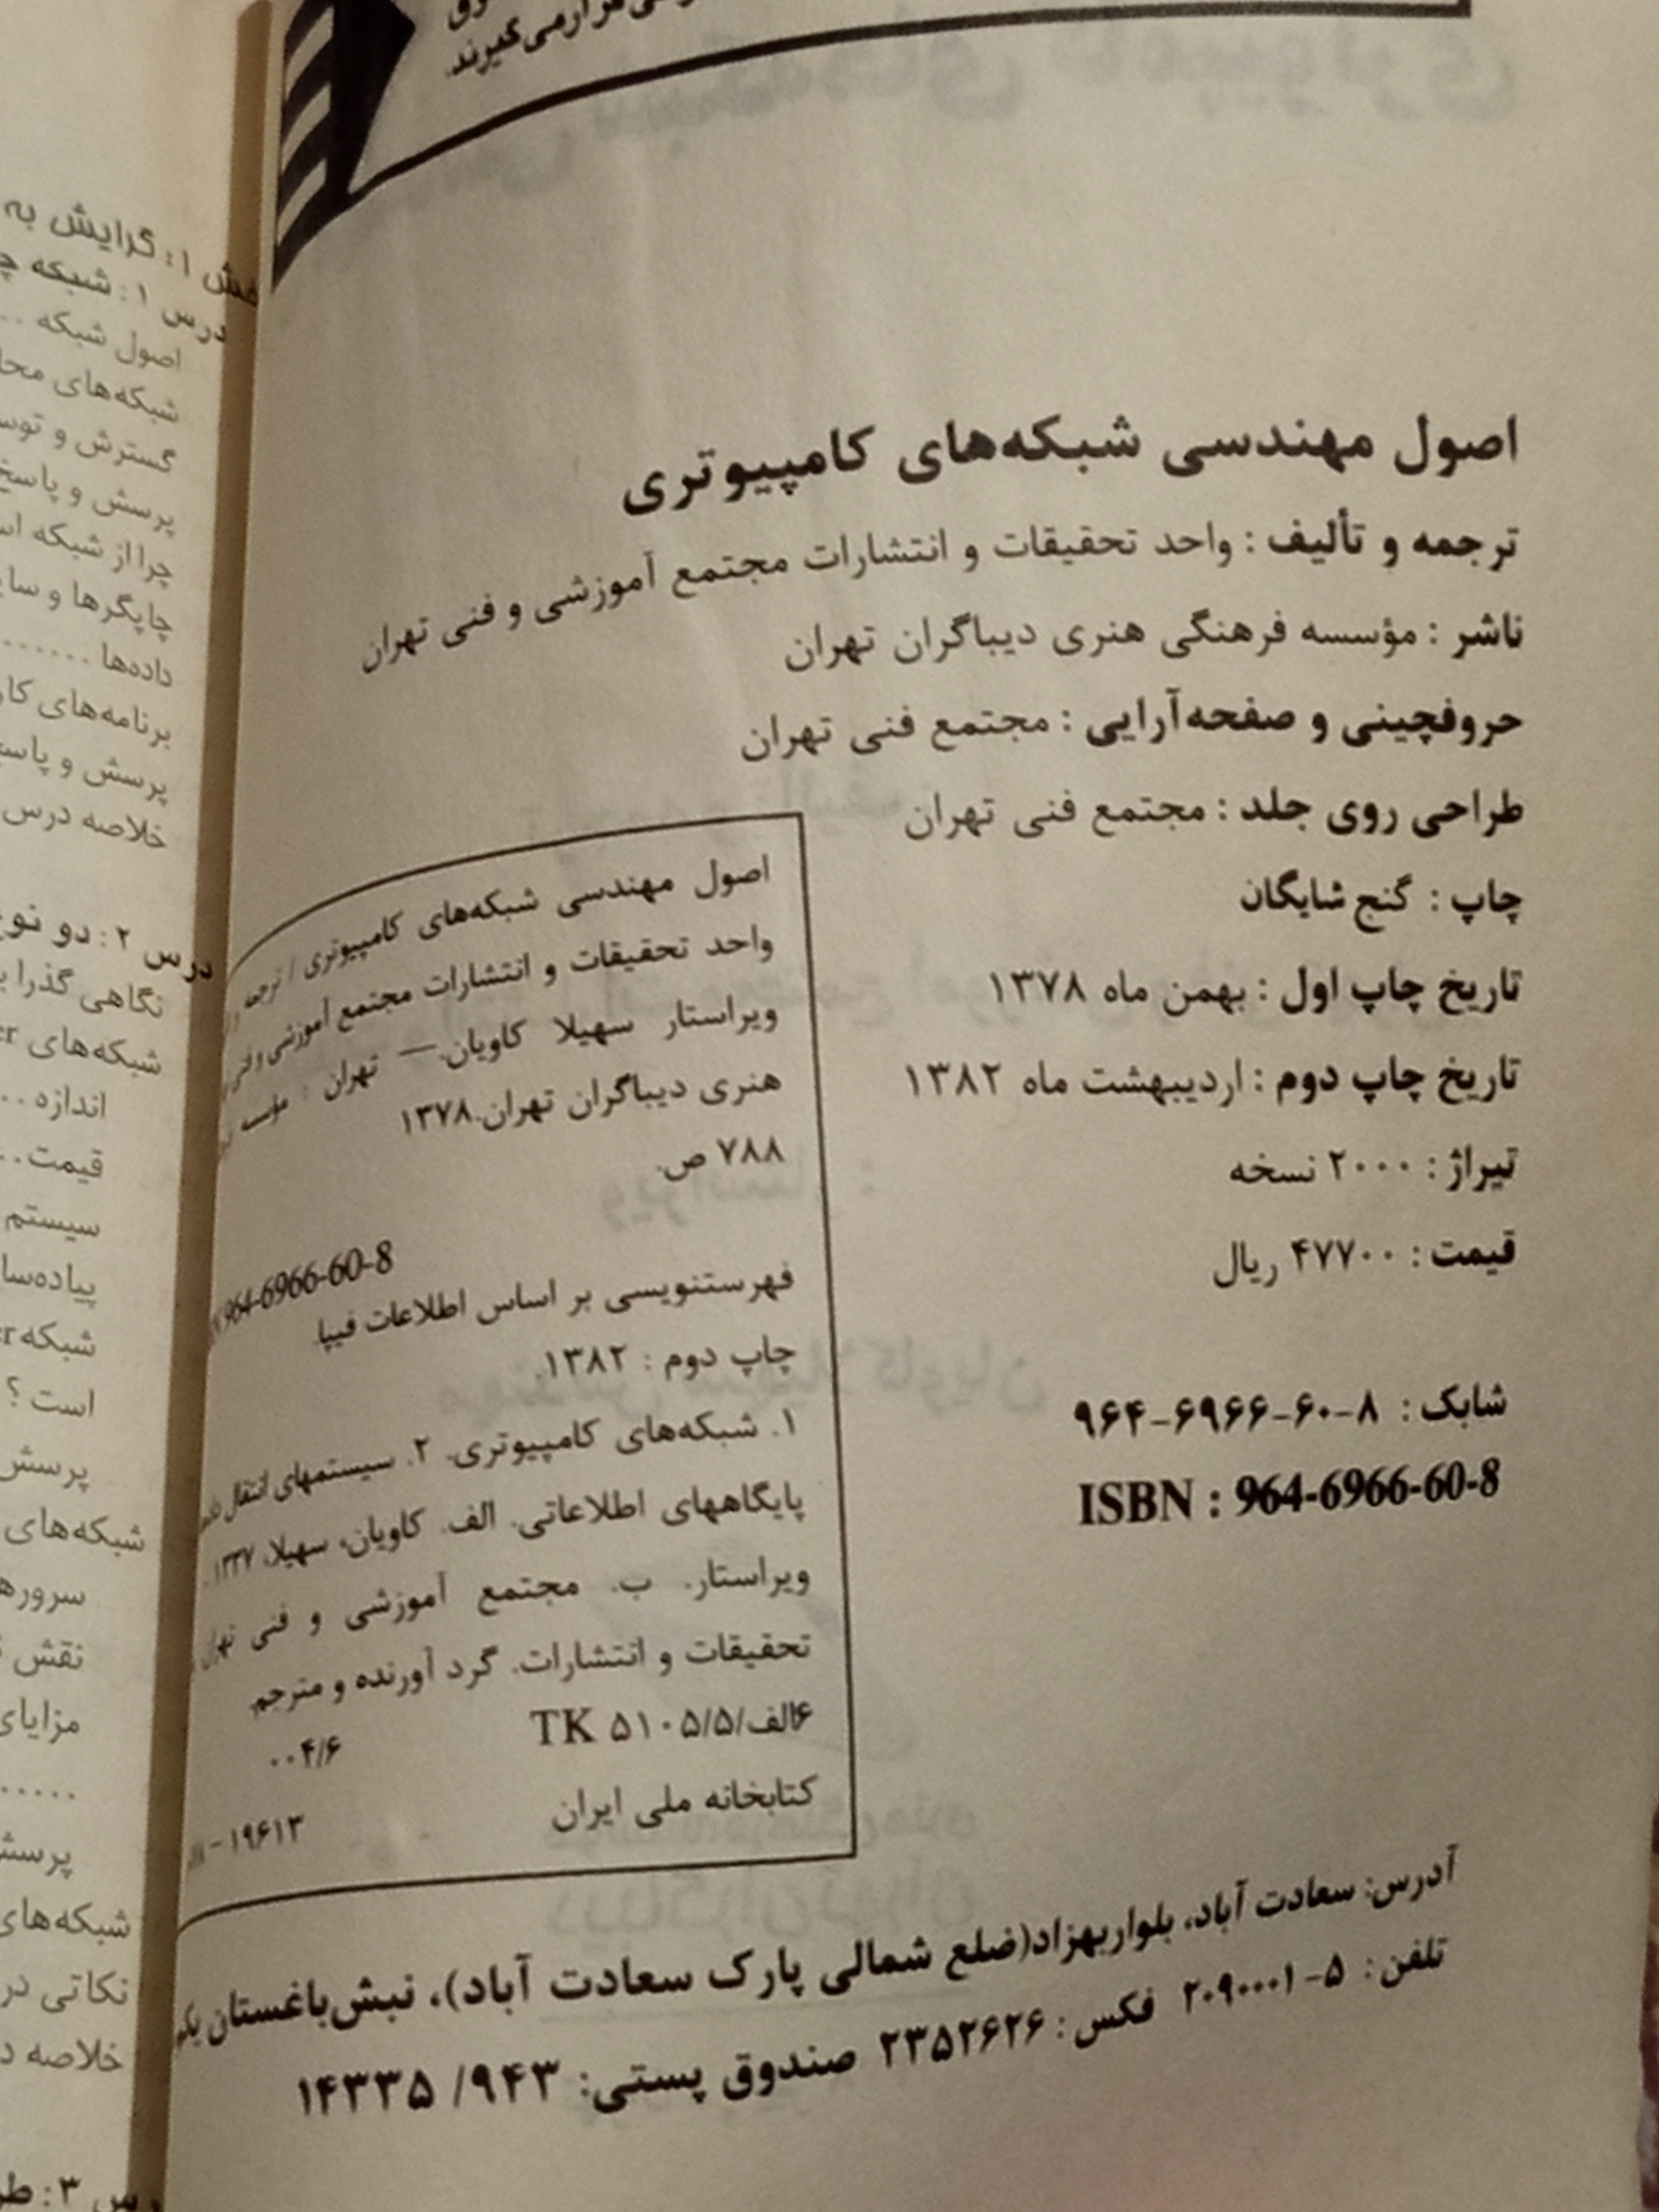 می‌گیرند.
اصول مهندسی شبکه‌های کامپیوتری
ترجمه و تألیف : واحد تحقیقات و انتشارات مجتمع آموزشی و فنی تهران
ناشر : مؤسسه فرهنگی هنری دیباگران تهران
حروفچینی و صفحه‌آرایی : مجتمع فنی تهران
طراحی روی جلد : مجتمع فنی تهران
چاپ : گنج شایگان
تاریخ چاپ اول : بهمن ماه ۱۳۷۸
تاریخ چاپ دوم : اردیبهشت ماه ۱۳۸۲
تیراژ : ۲۰۰۰ نسخه
قیمت : ۴۷۷۰۰ ریال
شابک : ۸-۶۰-۶۹۶۶-۹۶۴
ISBN : 964-6966-60-8
اصول مهندسی شبکه‌های کامپیوتری / ترجمه و
واحد تحقیقات و انتشارات مجتمع آموزشی و فنی
ویراستار سهیلا کاویان.— تهران : مؤسسه
هنری دیباگران تهران.۱۳۷۸
۷۸۸ ص.
964-6966-60-8
فهرستنویسی بر اساس اطلاعات فیپا.
چاپ دوم : ۱۳۸۲.
۱. شبکه‌های کامپیوتری. ۲. سیستمهای انتقال
پایگاههای اطلاعاتی. الف. کاویان، سهیلا، ۱۳۳۷
ویراستار. ب. مجتمع آموزشی و فنی تهران
تحقیقات و انتشارات. گرد آورنده و مترجم.
۶الف/۵/۵۱۰۵ TK ۰۰۴/۶
کتابخانه ملی ایران ۱۹۶۱۳ -
آدرس: سعادت آباد، بلواربهزاد(ضلع شمالی پارک سعادت آباد)، نبش‌باغستان یکم
تلفن: ۵-۲۰۹۰۰۰۱ فکس: ۲۳۵۲۶۲۶ صندوق پستی: ۹۴۳/ ۱۴۳۳۵
۱: گرایش به
درس ۱: شبکه
اصول شبکه ..
شبکه‌های
گسترش و
پرسش و پاسخ
چرا از شبکه
چاپگرها و
داده‌ها ......
برنامه‌های
پرسش و پاسخ
خلاصه درس
درس ۲: دو نوع
نگاهی گذرا
شبکه‌های
اندازه ..
قیمت..
سیستم
شبکه
است ؟
پرسش
شبکه‌های
نقش
مزایای
.....
شبکه‌های
نکاتی در
خلاصه
۳: